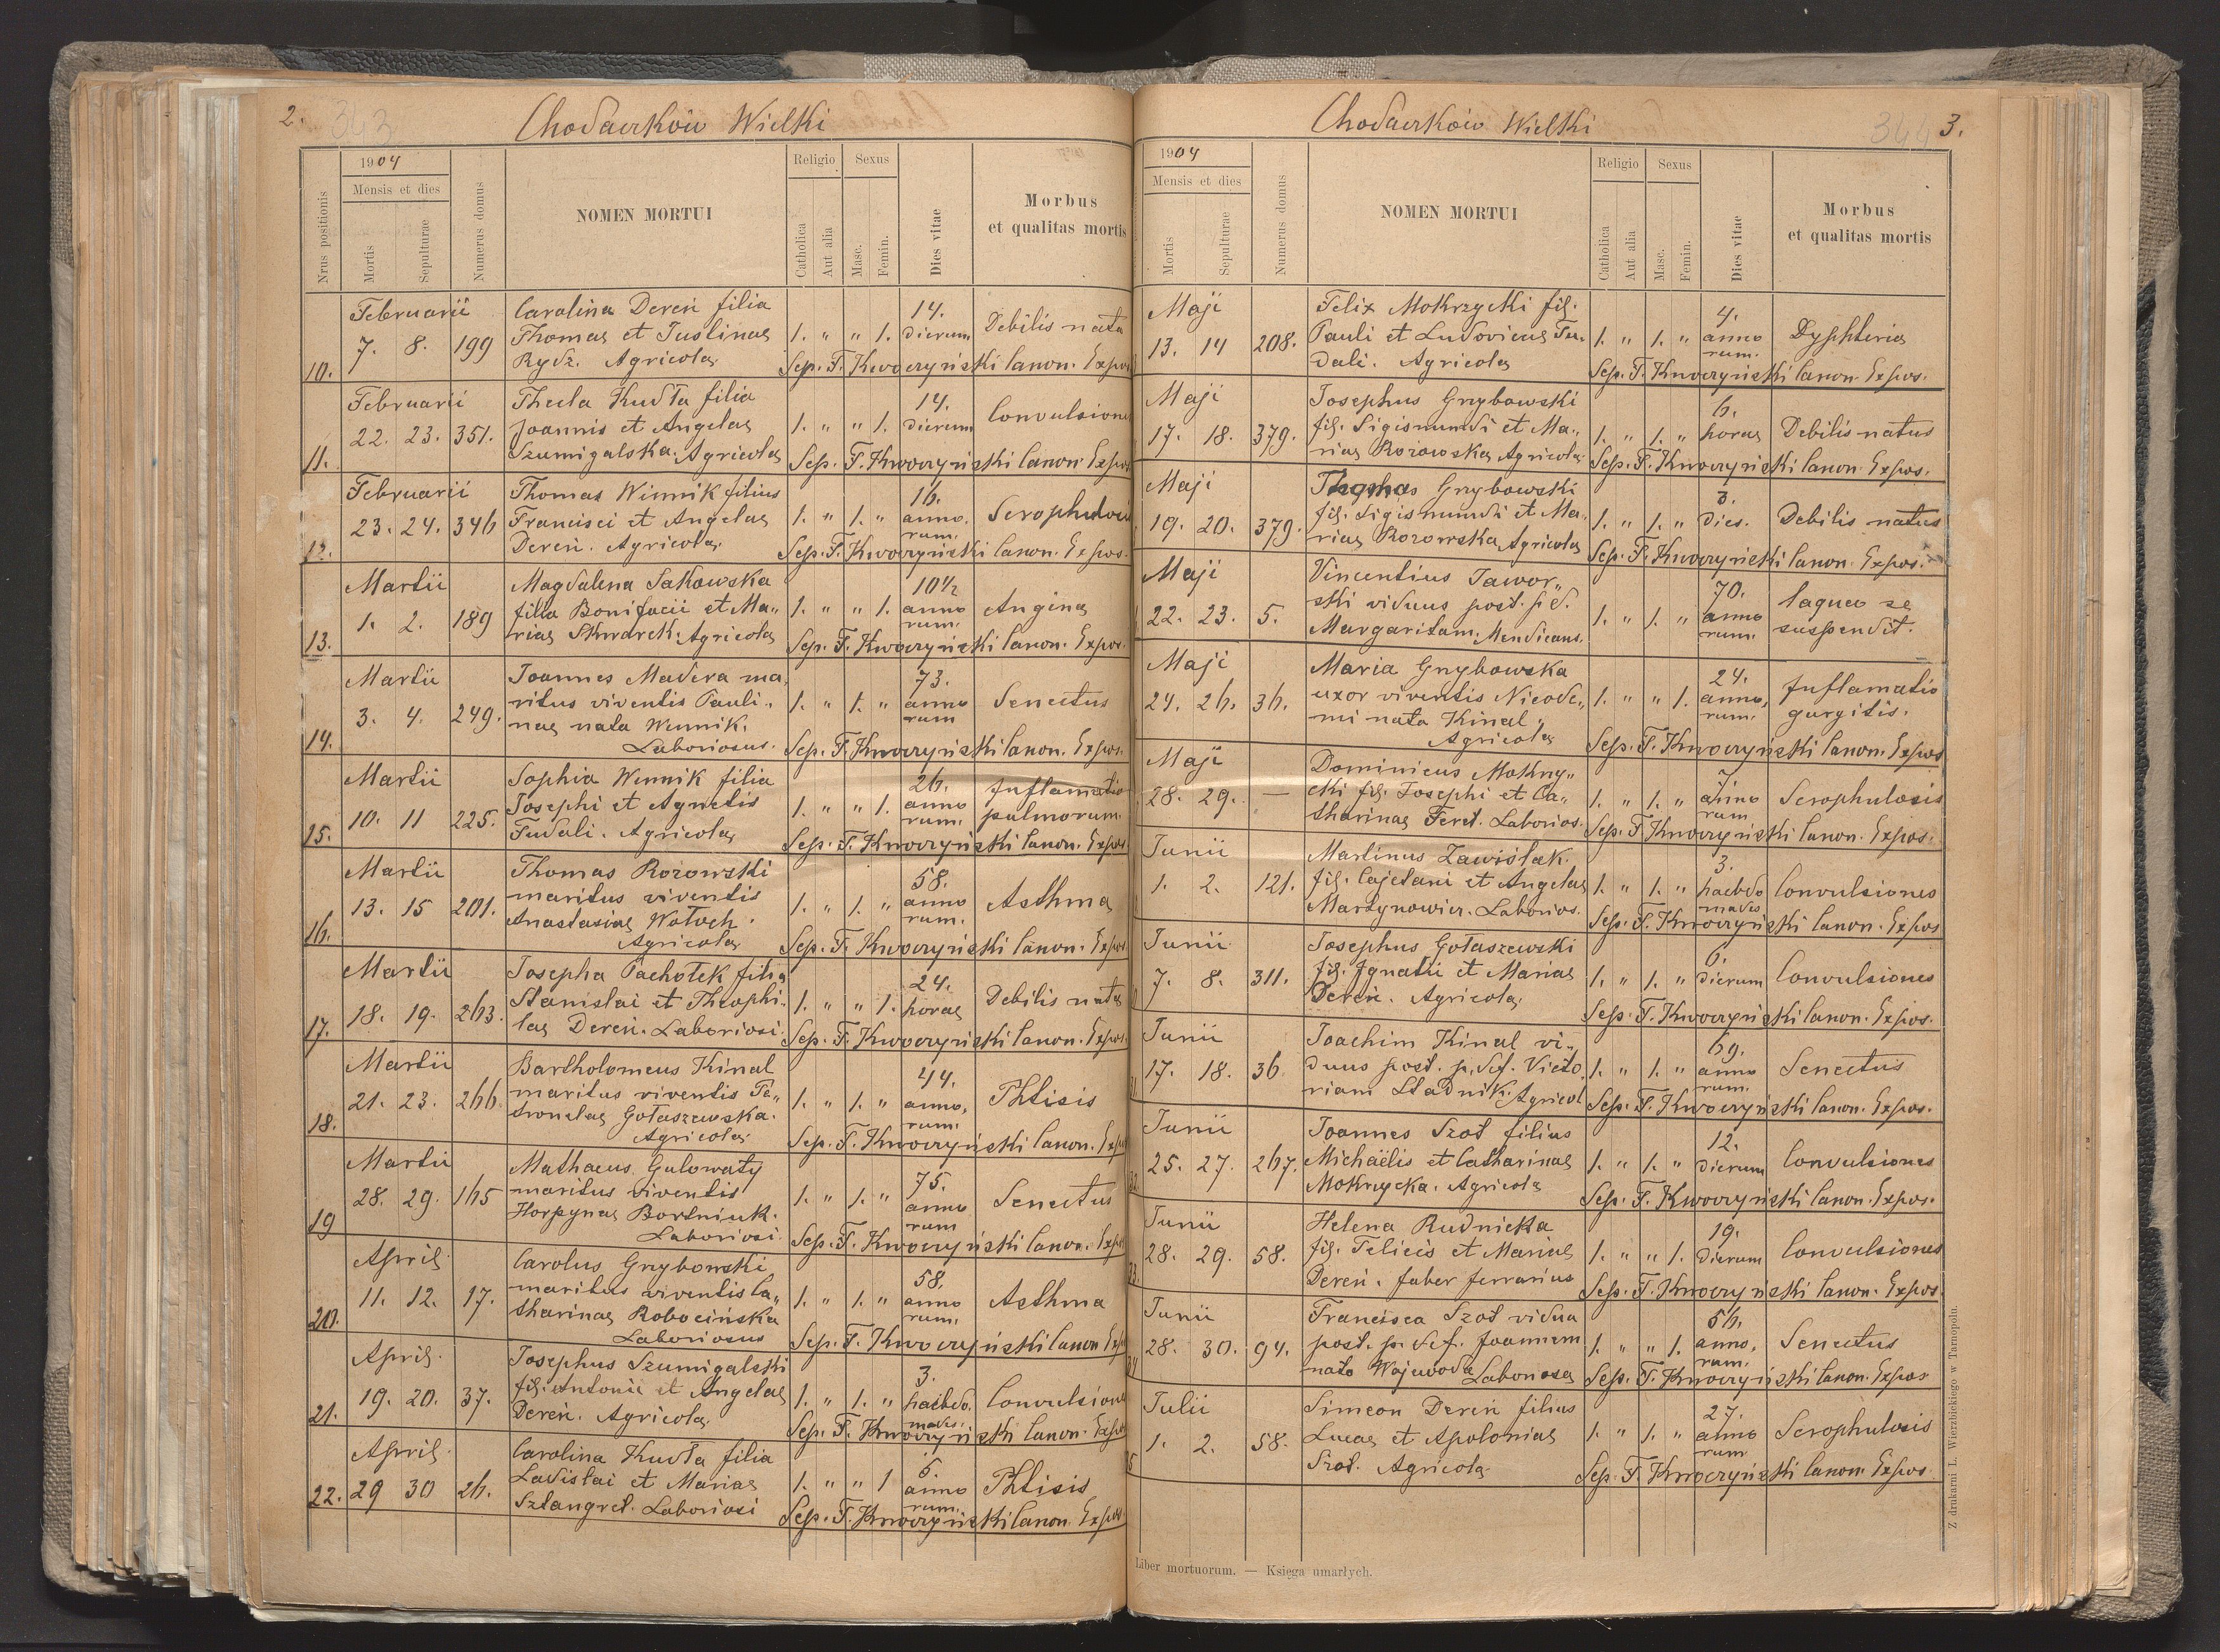 2.
343
Chodaczków Wielki
1904
Mensis et dies
Nrus positionis
Mortis
Sepulturae
Numerus domus
NOMEN MORTUI
Religio
Catholica
Aut alia
Sexus
Masc.
Femin.
Dies vitae
Morbus
et qualitas mortis
10. Februarii 7. 8. 199
Carolina Dereń filia
Thomae et Justinae
Rydz. Agricolae
1. " " 1. 14. dierum Debilis nata
Sep. F. Kwoczyński Canon. Expos.
11. Februarii 22. 23. 351.
Thecla Kudła filia
Joannis et Angelae
Szumigalska. Agricolae
1. " " 1. 14. dierum Convulsiones
Sep. F. Kwoczyński Canon. Expos.
12. Februarii 23. 24. 346
Thomas Winnik filius
Francisci et Angelae
Dereń. Agricolae
1. " 1. " 16. anno. rum. Scrophulosis
Sep. F. Kwoczyński Canon. Expos.
13. Martii 1. 2. 189
Magdalena Sakowska
filia Bonifacii et Ma„
riae Skwarek. Agricolae
1. " " 1. 10½ anno rum. Angina
Sep. F. Kwoczyński Canon. Expos.
14. Martii 3. 4. 249.
Joannes Madera ma„
ritus viventis Pauli„
nae nata Winnik.
Laboriosus.
1. " 1. " 73. anno rum Senectus
Sep. F. Kwoczyński Canon. Expos.
15. Martii 10. 11 225.
Sophia Winnik filia
Josephi et Agnetis
Fudali. Agricolae
1. " " 1. 26. anno rum. Inflamatio pulmorum.
Sep. F. Kwoczyński Canon. Expos.
16. Martii 13. 15 201.
Thomas Rozowski
maritus viventis
Anastasiae Wołoch.
Agricolae
1. " 1. " 58. anno rum. Asthma
Sep. F. Kwoczyński Canon. Expos.
17. Martii 18. 19. 263.
Josepha Pachołek filia
Stanislai et Theophi„
lae Dereń. Laboriosi.
1. " " 1. 24. horae Debilis nata
Sep. F. Kwoczyński Canon. Expos.
18. Martii 21. 23. 266
Bartholomeus Kinal
maritus viventis Pe„
tronelae Gołaszewska.
Agricolae
1. " 1. " 44. anno, rum. Phtisis
Sep. F. Kwoczyński Canon. Expos
19 Martii 28. 29. 165
Mathaeus Gulowaty
maritus viventis
Horpynae Bortniuk.
Laboriosi.
1. " 1. " 75. anno rum Senectus
Sep. F. Kwoczyński Canon. Expos
20. April. 11. 12. 17.
Carolus Grzybowski
maritus viventis Ca„
tharinae Robocińska
Laboriosus
1. " 1. " 58. anno rum. Asthma
Sep. F. Kwoczyński Canon Expos
21. April. 19. 20. 37.
Josephus Szumigalski
fil. Antonii et Angelae
Dereń. Agricolae
1. " 1. " 3. haebdo. mades. Convulsiones
Sep. F. Kwoczyński Canon. Expos
22. April. 29 30 26.
Carolina Kudła filia
Ladislai et Mariae
Sztangret. Laboriosi
1. " " 1 5. anno rum. Phtisis
Sep. F. Kwoczyński Canon. Expos.
Chodaczków Wielki
344
3.
1904
Mensis et dies
Mortis
Sepulturae
Numerus domus
NOMEN MORTUI
Religio
Catholica
Aut alia
Sexus
Masc.
Femin.
Dies vitae
Morbus
et qualitas mortis
Maji 13. 14 208.
Felix Mokrzycki fil.
Pauli et Ludovicae Fu„
dali. Agricolae
1. " 1. " 4. anno rum. Dyphteria
Sep. F. Kwoczyński Canon. Expos.
Maji 17. 18. 379.
Josephus Grzybowski
fil. Sigismundi et Ma„
riae Rozowska Agricolae
1. " 1. " 6. horae Debilis natus
Sep. F. Kwoczyński Canon. Expos.
Maji 19. 20. 379.
Thomas Grzybowski
fil. Sigismundi et Ma„
riae Rozowska Agricolae
1. " 1. " 3. dies. Debilis natus
Sep. F. Kwoczyński Canon. Expos.
Maji 22. 23. 5.
Vincentius Jawor„
ski viduus post. p. d.
Margaritam. Mendicans.
1. " 1. " 70. anno rum. laqueo se suspendit.
Maji 24. 26. 36.
Maria Grzybowska
uxor viventis Nicode„
mi nata Kinal„
Agricolae
1. " " 1. 24. anno, rum. Inflamatio gurgitis.
Sep. F. Kwoczyński Canon. Expos
Maji 28. 29. —
Dominicus Mokrzy„
cki fil. Josephi et Ca„
tharinae Feret. Laborios.
1. " 1. " 7. anno rum Scrophulosis
Sep. F. Kwoczyński Canon. Expos.
Junii 1. 2. 121.
Martinus Zawiślak.
fil. Cajetani et Angelae
Martynowicz. Laborios.
1. " 1. " 3. haebdo mades Convulsiones
Sep. F. Kwoczyński Canon. Expos
Junii 7. 8. 311.
Josephus Gołaszewski
fil. Ignatii et Mariae
Dereń. Agricolae
1. " 1. " 6. dierum Convulsiones
Sep. F. Kwoczyński Canon. Expos.
Junii 17. 18. 36
Joachim Kinal vi„
duus post. p. def. Victo„
riam Stadnik. Agricol
1. " 1. " 69. anno rum. Senectus
Sep. F. Kwoczyński Canon. Expos.
Junii 25. 27. 267.
Joannes Szot filius
Michaëlis et Catharinae
Mokrzycka. Agricola
1. " 1. " 12. dierum Convulsiones
Sep. F. Kwoczyński Canon. Expos.
Junii 28. 29. 58.
Helena Rudnicka
fil. Felicis et Mariae
Dereń. faber ferrarius
1. " " 1. 19. dierum Convulsiones
Sep. F. Kwoczyński Canon. Expos.
Junii 28. 30. 94.
Francisca Szot vidua
post. p. def. Joannem
nata Wojewoda Laboriosa
1. " " 1. 56. anno, rum. Senectus
Sep. F. Kwoczyński Canon. Expos
Julii 1. 2. 58.
Simeon Dereń filius
Lucae et Apoloniae
Szot. Agricola
1. " 1. " 27. anno rum Scrophulosis
Sep. F. Kwoczyński Canon. Expos.
Liber mortuorum. — Księga umarłych.
Z drukarni L. Wierzbickiego w Tarnopolu.